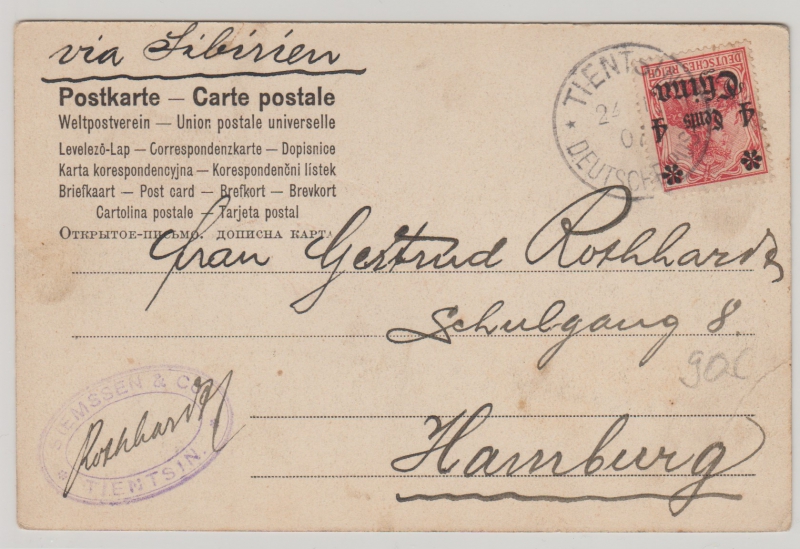 via Sibirien
Postkarte — Carte postale
Weltpostverein — Union postale universelle
Levelező-Lap — Correspondenzkarte — Dopisnice
Karta korespondencyjna — Korespondenčni listek
Briefkaart — Post card — Brefkort — Brevkort
Cartolina postale — Tarjeta postal
Открытое-письмо. дописна карта
TIENTS
24
07
DEUTSCHE POS
DEUTSCHES REICH
China
4 Cents 4
Frau Gertrud Rothhardt
Schulgang 8.
90c
Hamburg
SIEMSSEN & CO
Rothhardt
TIENTSIN.